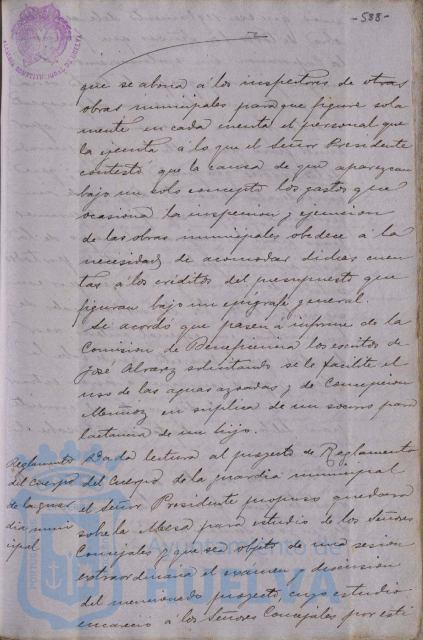 -588-
ALCALDIA CONSTITUCIONAL DE HUELVA
que se abona á los inspectores de otras
obras municipales para que figure sola
mente en cada cuenta el personal que
la ejecuta á lo que el Señor Presidente
contestó que la causa de que aparezcan
bajo un solo concepto los gastos que
ocasiona la inspeccion y ejecucion
de las obras municipales obedece á la
necesidad de acomodar dichas cuen
tas á los créditos del presupuesto que
figuran bajo un epígrafe general.
Se acordó que pasen á informe de la
Comision de Beneficencia los escritos de
José Alvarez solicitando se le facilite el
uso de las aguas azoadas y de Concepcion
Muñoz en súplica de un socorro para
lactancia de un hijo.
Reglamento
del Cuerpo
de la guar
dia muni
cipal
Dada lectura al proyecto de Reglamento
del Cuerpo de la guardia municipal
el Señor Presidente propuso quedara
sobre la Mesa para estudio de los Señores
Concejales y que sea objeto de una sesion
extraordinaria el exámen y discusion
del mencionado proyecto, cuyo estudio
encareció á los Señores Concejales por esti
Ayuntamiento de
HUELVA